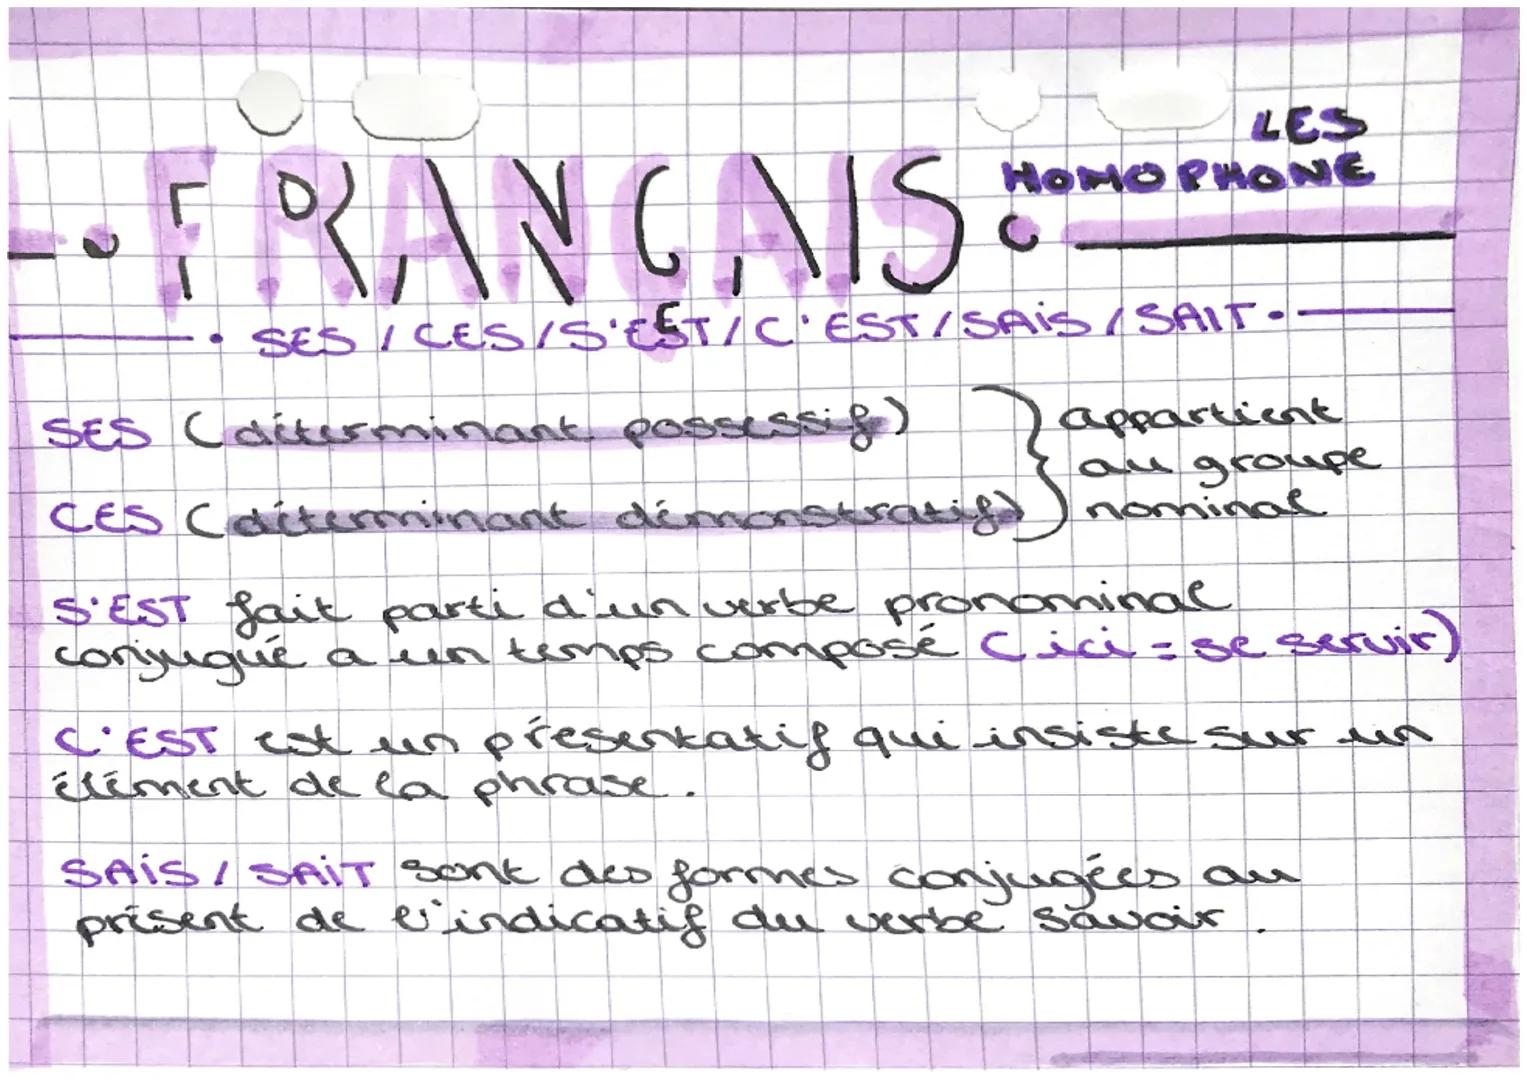 LES
HOMOPHONE
FRANÇAIS
SES / CES / S'EST / C'EST / SAIS / SAIT
SES (déterminant possessif)
CES (déterminant démonstratif)
appartient
au groupe
nominal
S'EST fait parti d'un verbe pronominal
conjugué a un temps composé (ici = se servir)
C'EST est un présentatif qui insiste sur un
élément de la phrase.
SAIS / SAIT sont des formes conjugées au
présent de l'indicatif du verbe savoir.